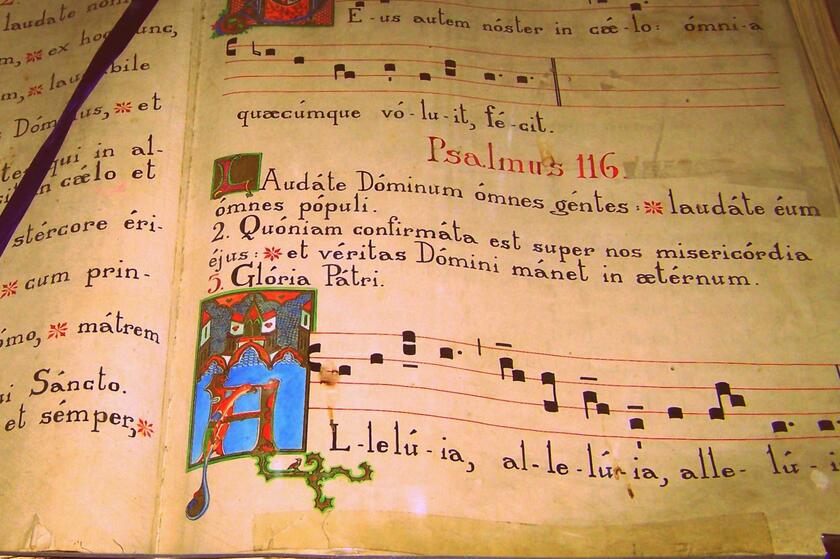 laudate
m, ✻ ex hoc nunc,
m, ✻ laudabile
Dóminus, ✻ et
qui in al-
in cælo et
stércore éri-
✻ cum prin-
ómo, ✻ mátrem
Sáncto.
et sémper, ✻
DEus autem nóster in cæ-lo: ómni-a
quæcúmque vó-lu-it, fé-cit.
Psalmus 116.
LAudáte Dóminum ómnes géntes: ✻ laudáte éum
ómnes pópuli.
2. Quóniam confirmáta est super nos misericórdia
éjus: ✻ et véritas Dómini mánet in ætérnum.
3. Glória Pátri.
AL-lelú-ia, al-le-lú-ia, alle-lú-i